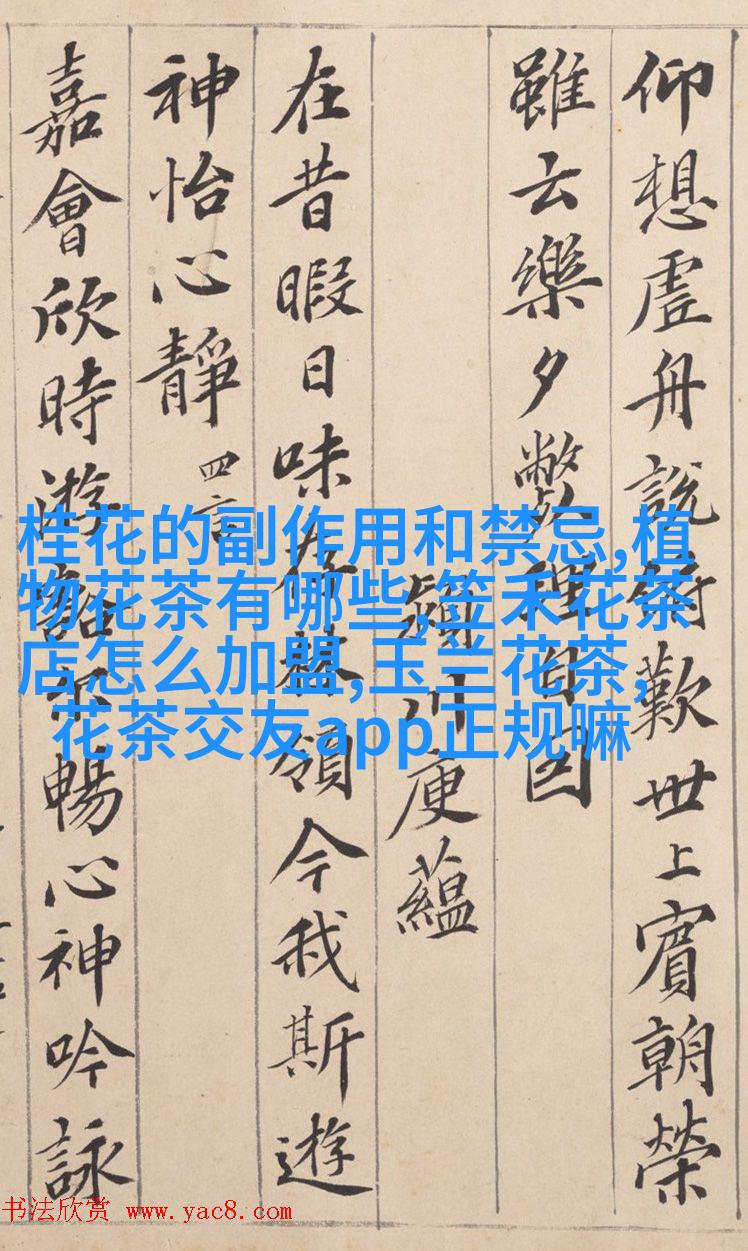 仰想虛舟說俯歎世上賓朝榮
雖云樂夕弊理自因
潁川庾蘊
在昔暇日味存林嶺今我斯遊
神怡心靜 四言
嘉會欣時游豁尒暢心神吟詠
桂花的副作用和禁忌,植
物花茶有哪些,笠禾花茶
店怎么加盟,玉兰花茶,
花茶交友app正规嘛
书法欣赏 www.yac8.com